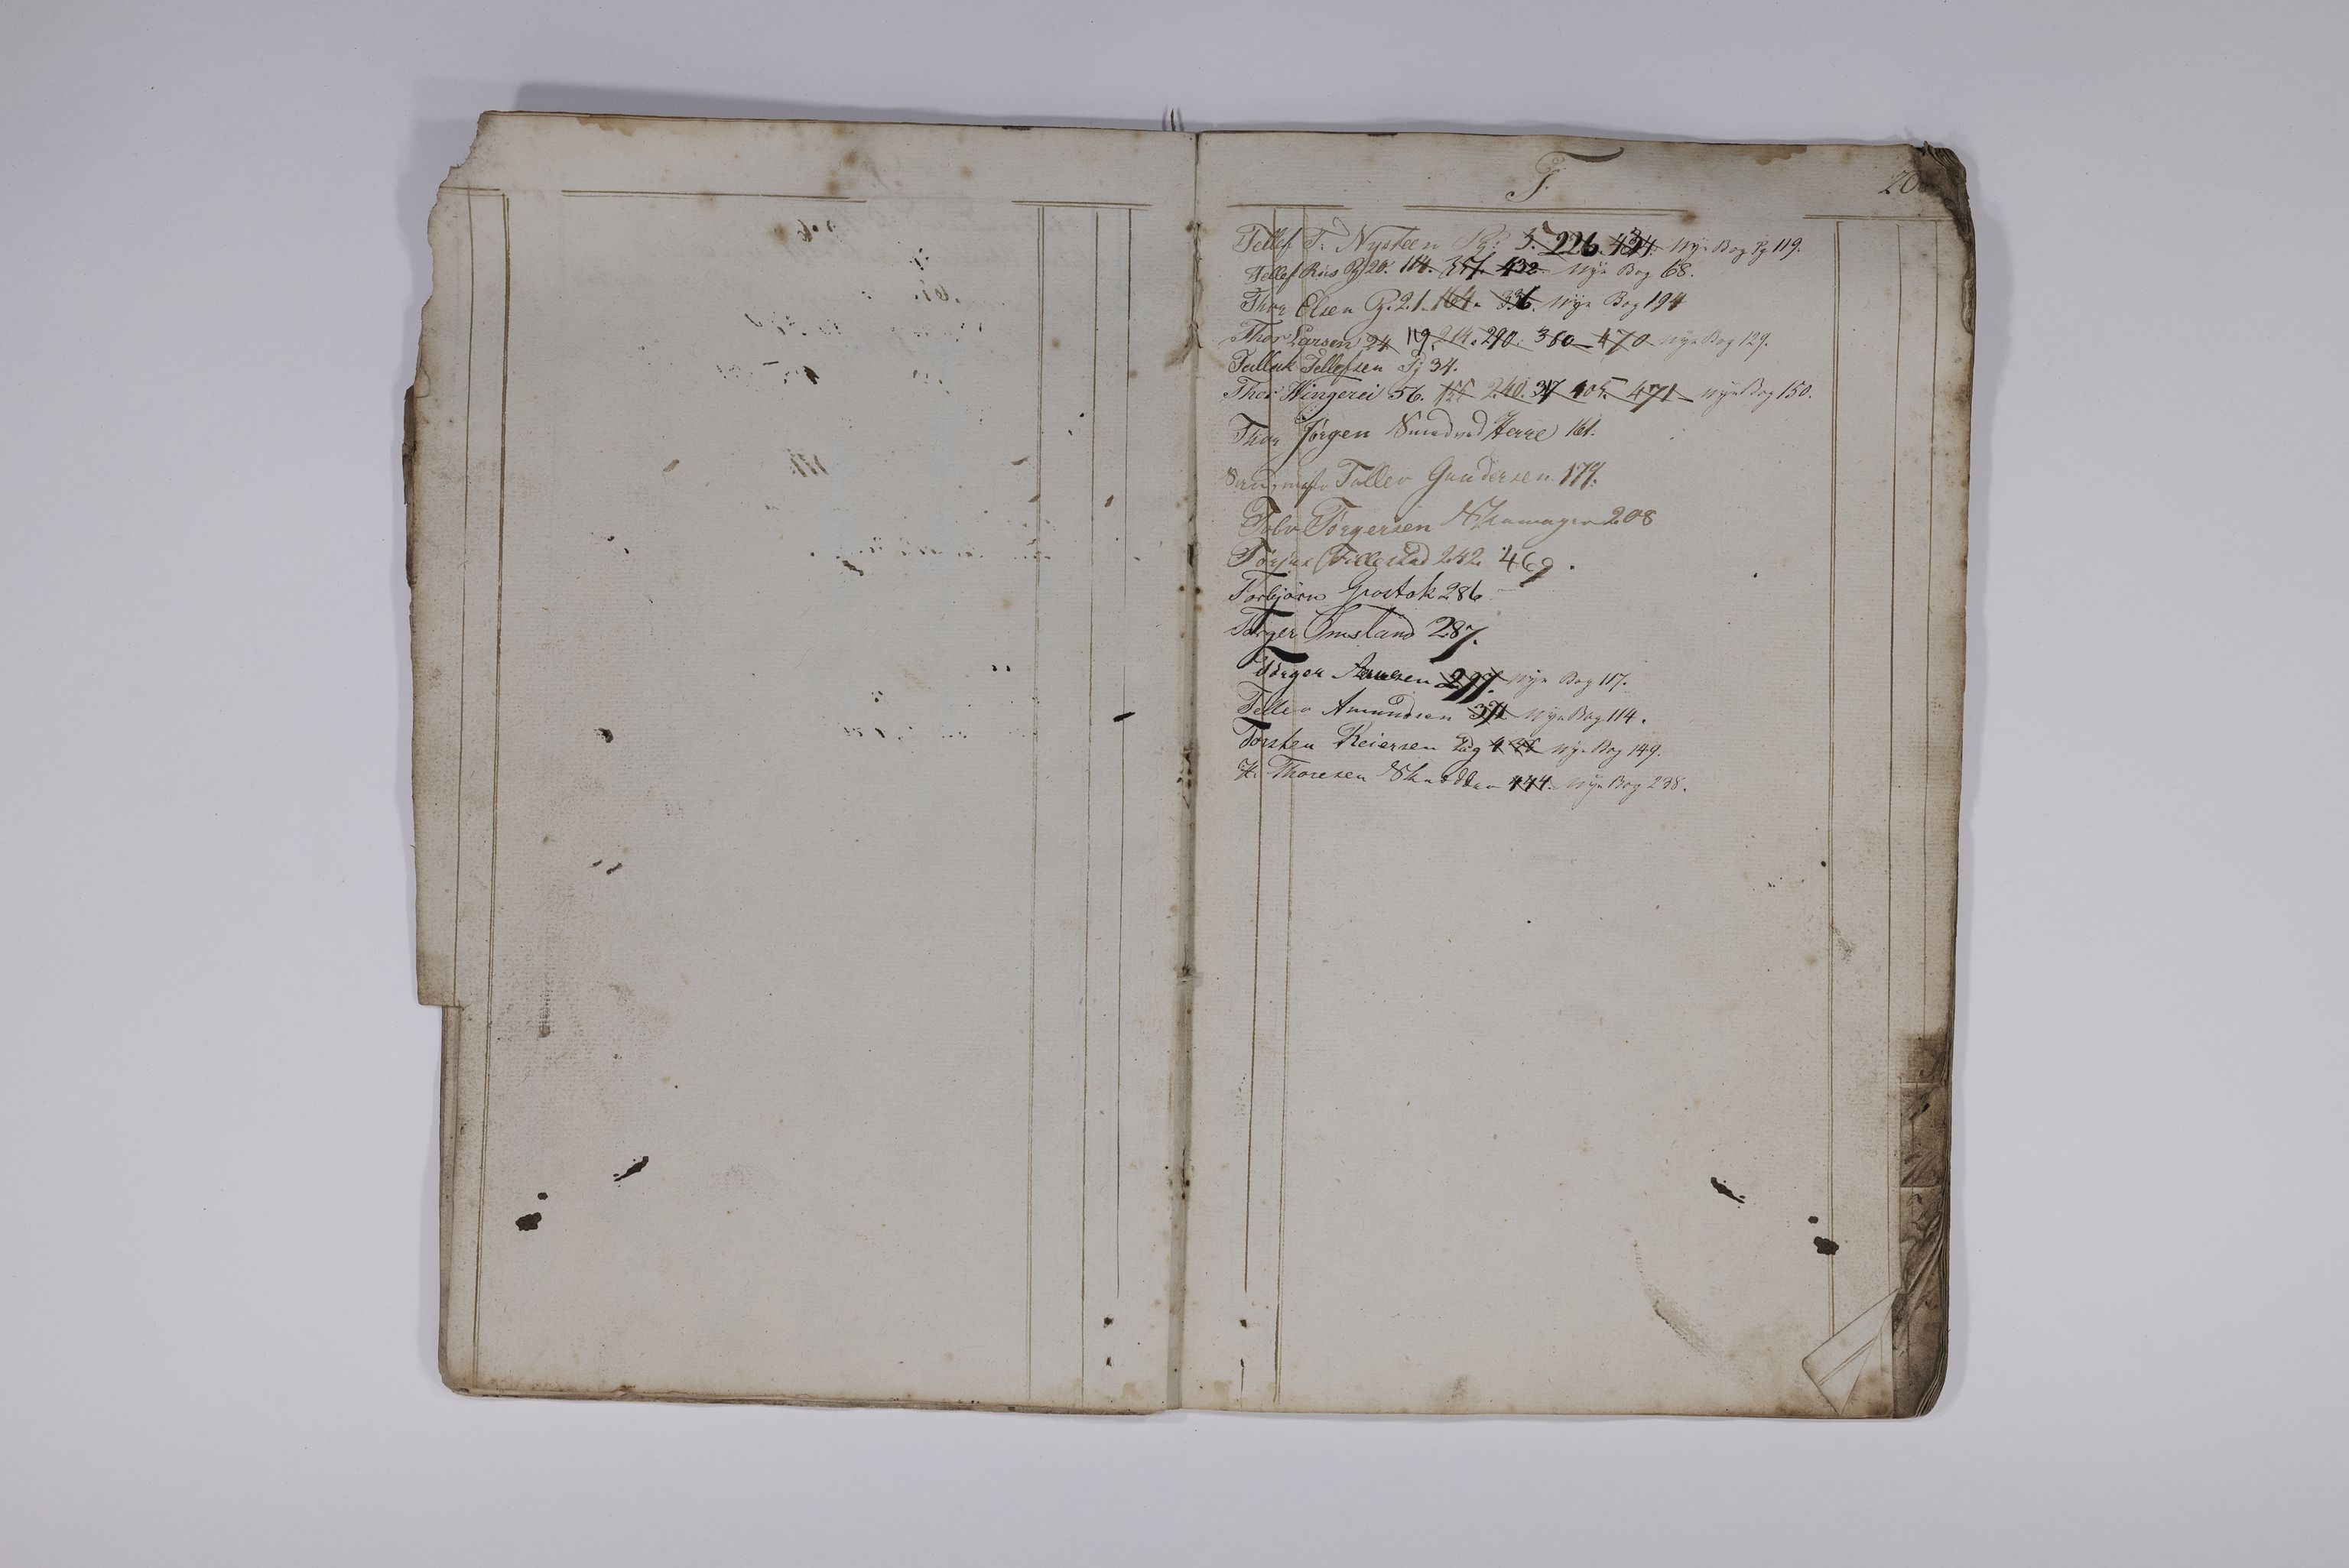 T.
20
Tellef T. Nysteen Pg: 5. 226. 434. Nye Bog Pg 119.
Tellef Riis Pg 20. 114. 357. 432. Nye Bog 68.
Thor Olsen Pg. 21. 164. 336. Nye Bog 194
Thor Larsen 24 119. 214. 290. 380 470 Nye Bog 129.
Tallak Tellefsen Pg 34.
Thor Wingerei 56. 155 240. 317 405. 471 Nye Bog 150.
Thor Jørgen Smed ved Herre 161.
Tallev Gundersen 177.
Tolv Torgersen Skumager 208
Torjus Tillestad 242. 469.
Torbjörn Grostok 286
Torger Omsland 287.
Torger Arnesen 297. Nye Bog 117.
Tellev Amundsen 371 Nye Bog 114.
Torsten Reiersen Pag Nye Bog 149.
H. Thoresen Skredder 444. Nye Bog 238.